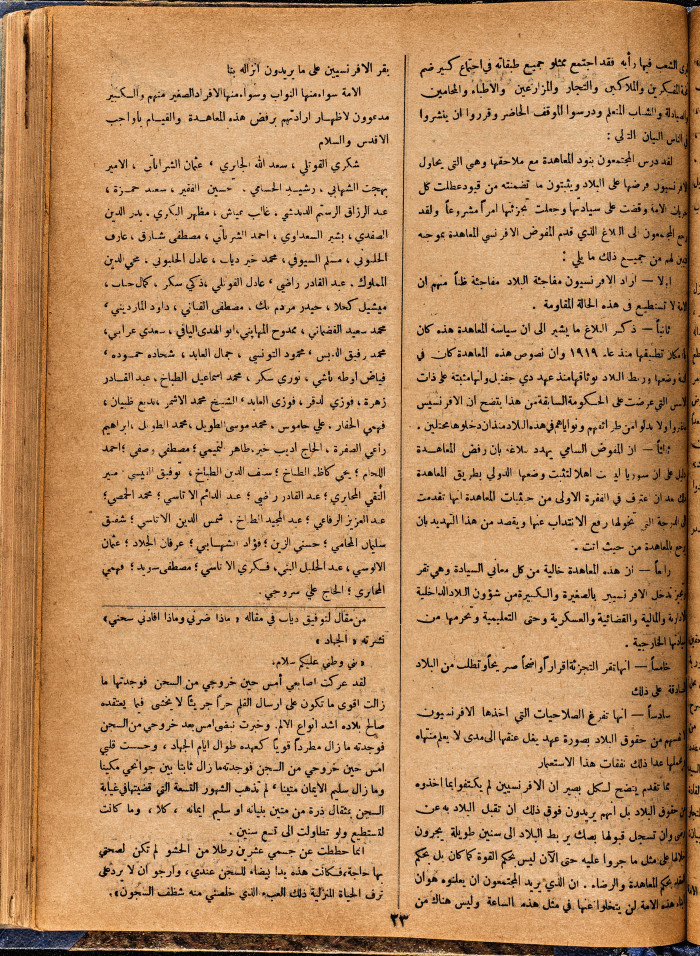 الشعب فيها رأيه فقد اجتمع ممثلو جميع طبقاته في اجتماع كبير ضم
المفكرين والملاكين والتجار والمزارعين والاطباء والمحامين
والصيادلة والشباب المتعلم ودرسوا الموقف الحاضر وقرروا ان ينشروا
الناس البيان التالي :
لقد درس المجتمعون بنود المعاهدة مع ملاحقها وهي التي يحاول
الافرنسيون فرضها على البلاد ويثبتون ما تضمنته من قيود عطلت كل
الامة وقضت على سيادتها وجعلت تجزئتها امراً مشروعاً ولقد
المجتمعون الى البلاغ الذي قدم المفوض الافرنسي المعاهدة بموجبه
لهم من جميع ذلك ما يلي :
اولا — اراد الافرنسيون مفاجئة البلاد مفاجئة ظناً منهم ان
الامة لا تستطيع في هذه الحالة المقاومة .
ثانياً — ذكر البلاغ ما يشير الى ان سياسة المعاهدة هذه كان
تطبيقها منذ عام ١٩١٩ وان نصوص هذه المعاهدة كان في
وضعها وربط البلاد بوثاقها منذ عهد دي جفنيل وانها مثبتة على ذات
الاسس التي عرضت على الحكومة السابقة من هذا يتضح ان الافرنسيين
ولا بدلوا من طرائقهم ونواياهم في هذه البلاد منذ ان دخلوها محتلين .
ثالثاً — ان المفوض السامي يهدد ببلاغه بان رفض المعاهدة
على ان سوريا ليست اهلا لتثبت وضعها الدولي بطريق المعاهدة
بعد ان اعترف في الفقرة الاولى من حيثيات المعاهدة انها تقدمت
الدرجة التي تخولها رفع الانتداب عنها ويقصد من هذا التهديد بان
بالمعاهدة من حيث اتت .
رابعاً — ان هذه المعاهدة خالية من كل معاني السيادة وهي تقر
تدخل الافرنسيين بالصغيرة والكبيرة من شؤون البلاد الداخلية
الادارية والمالية والقضائية والعسكرية وحتى التعليمية وتحرمها من
سيادتها الخارجية .
خامساً — انها تقر التجزئة اقراراً واضحاً صريحاً وتطلب من البلاد
الموافقة على ذلك
سادساً — انها تفرغ الصلاحيات التي اخذها الافرنسيون
من حقوق البلاد بصورة عهد يغل عنقها الى مدى لا يعلم منتهاه
عدا ذلك نفقات هذا الاستعمار
مما تقدم يتضح لكل بصير ان الافرنسيين لم يكتفوا بما اخذوه
من حقوق البلاد بل انهم يريدون فوق ذلك ان تقبل البلاد به عن
وان تسجل قبولها بصك يربط البلاد الى سنين طويلة يجرون
على مثل ما جروا عليه حتى الآن ليس بحكم القوة كما كان بل بحكم
بحكم المعاهدة والرضاء . ان الذي يريد المجتمعون ان يعلنوه هو ان
هذه الامة لن يتخلوا عنها في مثل هذه الساعة وليس هناك من
يقر الافرنسيين على ما يريدون انزاله بنا
الامة سواء منها النواب وسواء منها الافراد الصغير منهم والكبير
مدعوون لاظهار ارادتهم برفض هذه المعاهدة والقيام بالواجب
الاقدس والسلام
شكري القوتلي ، سعد الله الجابري ، عثمان الشراباتي ، الامير
بهجت الشهابي ، رشيد الحسامي . حسين الفقير ، سعيد حمزة ،
عبد الرزاق الرستم الدندشي . غالب عياش ، مظهر البكري . بدر الدين
الصفدي ، بشير السعداوي ، احمد الشرباتي ، مصطفى شارق ، عارف
الحلبوني ، مسلم السيوفي ، محمد خير دياب ، عادل الحلبوني . محي الدين
المملوك . عبد القادر راضي ، عادل القوتلي ، ذكي سكر ، كمال حلب ،
ميشيل كحلا ، حيدر مردم بك . مصطفى القباني ، داود المارديني ،
محمد سعيد القضماني ، ممدوح المهايني ، ابو الهدى اليافي ، سعدي عرابي ،
محمد رفيق الدبس ، محمود التونسي ، جمال العابد ، شحاده حموده ،
فياض اوطه باشي ، نوري سكر ، محمد اسماعيل الطباخ . عبد القادر
زهرة ، فوزي لدقر ، فوزي العابد ، الشيخ محمد الاشمر ، بديع ظبيان ،
فهمي الحفار . علي جاموس ، محمد موسى الطويل ، محمد الطويل ، ابراهيم
راعي الصفرة ، الحاج اديب خير . طاهر التميمي ؛ مصطفى وصفي ؛ احمد
اللحام ؛ يحي كاظم الطباخ ؛ سيف الدين الطباخ ، توفيق القيسي . منير
التقي المخابري ؛ عبد القادر راضي ؛ عبد الدائم الاتاسي ؛ محمد الحمصي ؛
عبد العزيز الرفاعي ؛ عبد المجيد الطباخ . شمس الدين الاتاسي ؛ شفيق
سليمان المحامي ؛ حسني الزين ؛ فؤاد الشهابي ؛ عرفان الجلاد ؛ عثمان
الالوسي ، عبد الجليل البني ، فكري الاتاسي ؛ مصطفى سويد ؛ فهمي
المخابري ؛ الحاج علي سروجي .
من مقال لتوفيق دياب في مقاله « ماذا ضرني وماذا افادني سجني»
نشرته « الجهاد »
« بني وطني عليكم سلام ،
لقد عركت اصابعي أمس حين خروجي من السجن فوجدتها ما
زالت اقوى ما تكون على ارسال القلم حراً جريئاً لا يخشى فيما يعتقده
صالح بلاده اشد انواع الالم . وخبرت نبضي امس بعد خروجي من السجن
فوجدته ما زال مطرداً قوياً كعهده طوال ايام الجهاد ، وحسست قلبي
امس حين خروجي من السجن فوجدته ما زال ثابتا بين جوانحي مكينا
وما زال سليم الايمان متينا ، لم تذهب الشهور التسعة التي قضيتها في غيابة
السجن بمثقال ذرة من متين بنيانه او سليم ايمانه ، كلا ، وما كانت
لتستطيع ولو تطاولت الى تسع سنين .
انما حططت عن جسمي عشرين رطلا من الحشو لم تكن لصحتي
بها حاجة ، فكانت هذه يداً بيضاء للسجن عندي ، وارجو ان لا يرد علي
ترف الحياة المنزلية ذلك العبء الذي خلصني منه شظف السجون» .
٢٣